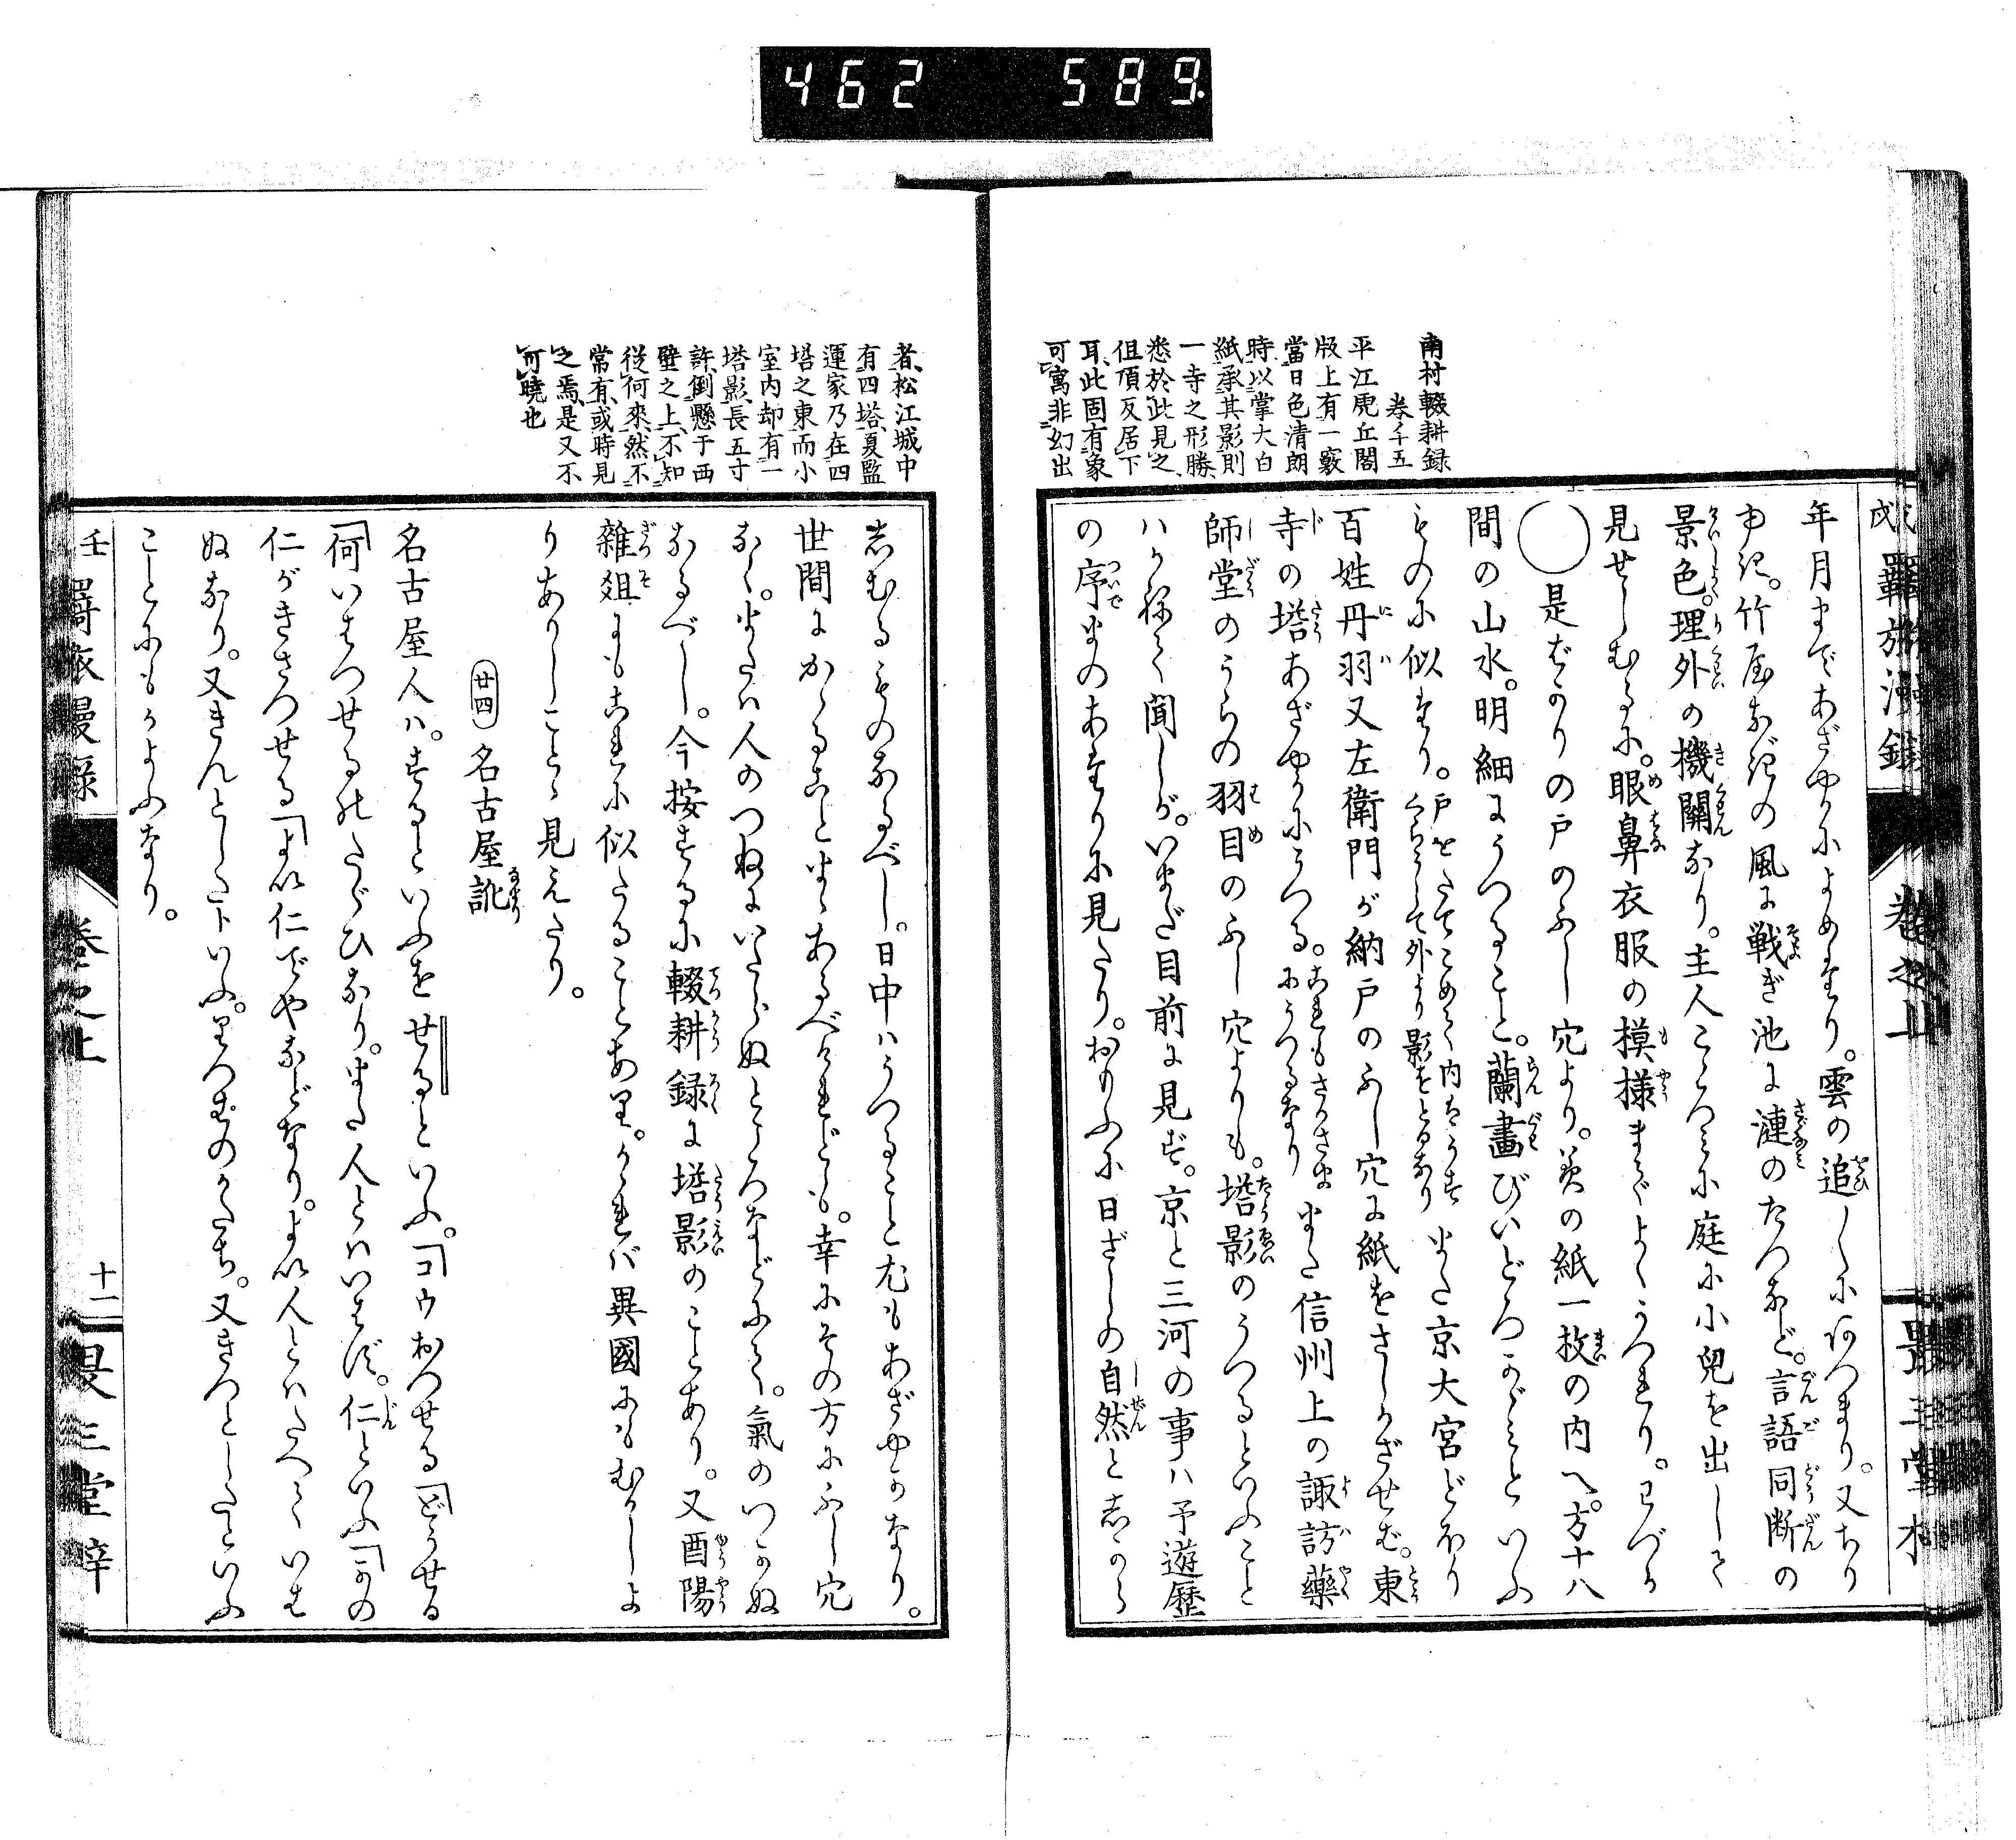 462 589
南村輟耕録
巻十五
平江虎丘閣
版上有一竅
當日色清朗
時以掌大白
紙承其影則
一寺之形勝
悉於此見之
但頂反居下
耳此固有象
可寓非幻出
年月まであざやかによめたり。雲の追しくにあつまり。又ちり
ゆき。竹屋なぎの風に戦ぎ池に漣のたつなど。言語同断の
景色。理外の機關なり。主人こころみに庭に小兒を出して
見せしむるに。眼鼻衣服の摸様までよくうつれり。わづか
◯是ばかりの戸のふし穴より。美の紙一枚の内へ。方十八
間の山水。明細にうつること。蘭畫びいどろかゞみといふ
ものに似たり。戸をたてこめて内をうす
くらくして外より影をとるなり
また京大宮どほり
百姓丹羽又左衛門が納戸のふし穴に紙をさしかざせば。東
寺の塔あざやかにうつる。これもさかさま
にうつるなり
また信州上の諏訪藥
師堂のうらの羽目のふし穴よりも。塔影のうつるといふこと
ハかねて聞しが。いまだ目前に見ず。京と三河の事ハ予遊歴
の序まのあたりに見たり。おもふに日ざしの自然としから
者松江城中
有四塔夏監
運家乃在四
塔之東而小
室内却有一
塔影長五寸
許倒懸于西
壁之上不知
從何來然不
常有或時見
之焉是又不
可曉也
しむるものなるべし。日中ハうつること尤もあざやかなり。
世間にかゝること、またあるべけれども。幸にその方にふし穴
なく。または人のつねにいたらぬところなどにて。氣のつかぬ
なるべし。今按するに輟耕録に塔影のことあり。又酉陽
雜爼にもこれに似たることあり。かゝれバ異國にもむかしよ
りありしことゝ見えたり。
廿四 名古屋訛
名古屋人ハ。するといふをせるといふ。「コウおつせる「どうせる
「何いはつせるのたぐひなり。また人とハいはず。仁といふ「かの
仁がきさつせる「よい仁でやなどなり。よい人とハたへていは
ぬなり。又きんとしたトいふ。りつはのかたち。又きつとしたといふ
ことにもかよふなり。
壬戌羇旅漫録
巻之上
十一